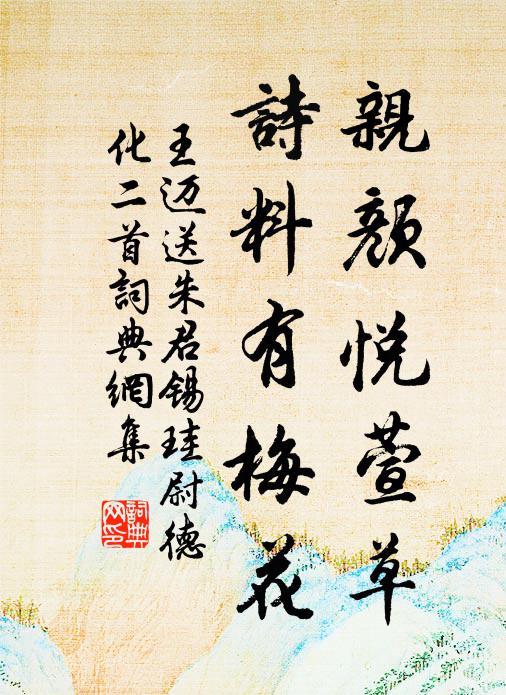 親顏悅萱草
詩料有梅花
王迈送朱君锡珪尉德
化二首詞典網集
詞典网印